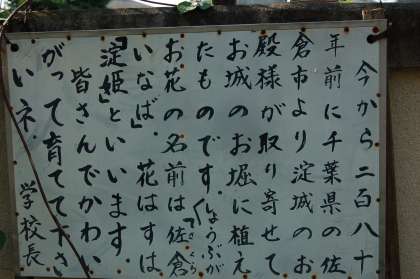 今から二百八十
年前に千葉県の佐
倉市より淀城のお
殿様が取り寄せて
お城のお堀に植え
たものです。しょうぶが
お花の名前は佐倉
さくら
いなば。花はすは
「淀姫」といいます。
皆さんでかわい
がって育てて下さ
いネ。
学校長